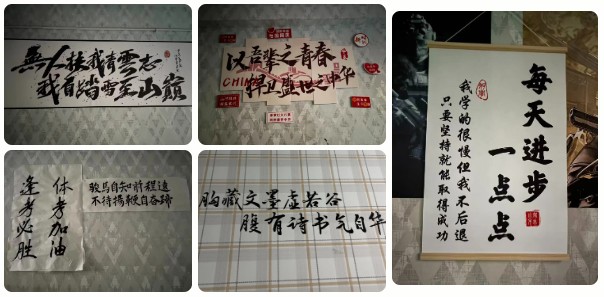 無人扶我青雲志
我自踏雪至山巅
以吾辈之青春
CHINA
捍卫盛世之中华
体考加油
逢考必胜
骏马自知前程远
不待揚鞭自奋蹄
胸藏文墨虚若谷
腹有诗书气自华
每天进步
一点点
我学的很慢但我不后退
只要坚持就能取得成功